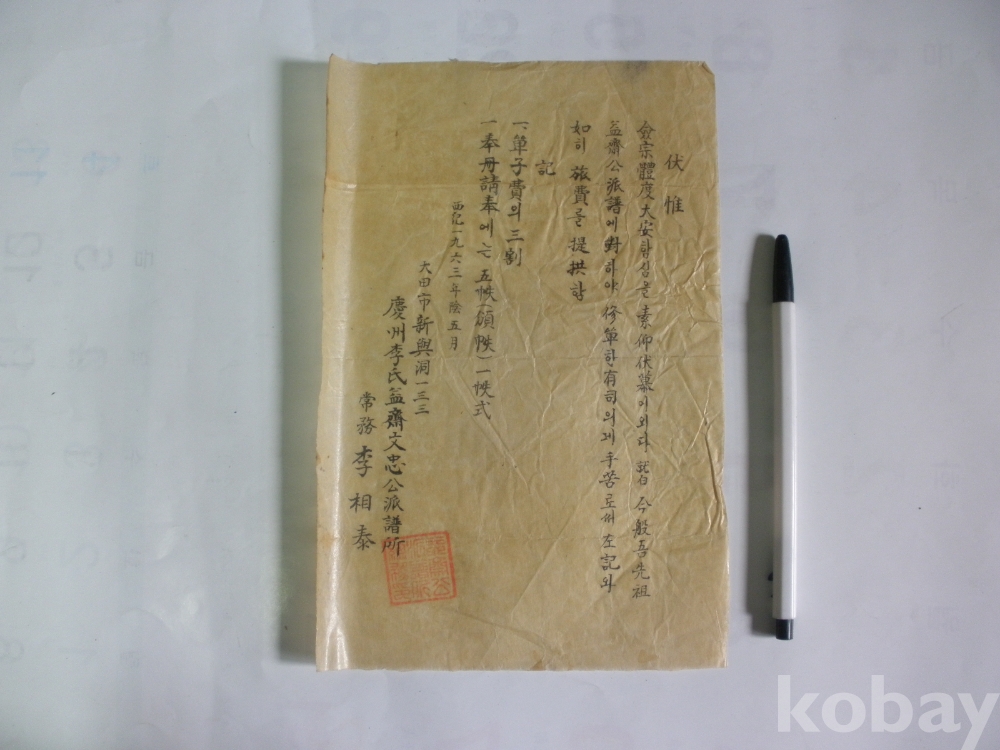 伏惟
僉宗體度大安하심을 素仰伏蒙이외다 就白 今般吾先祖
益齋公派譜에 對하야 修單한 有司의게 手苦로써 左記와
如히 旅費를 提拱함
記
一、單子費의 三割
一 奉冊請奉에는 五帙(頒帙) 一帙式
西紀一九六三年陰五月
大田市新興洞一三三
慶州李氏益齋文忠公派譜所
常務 李相泰
kobay